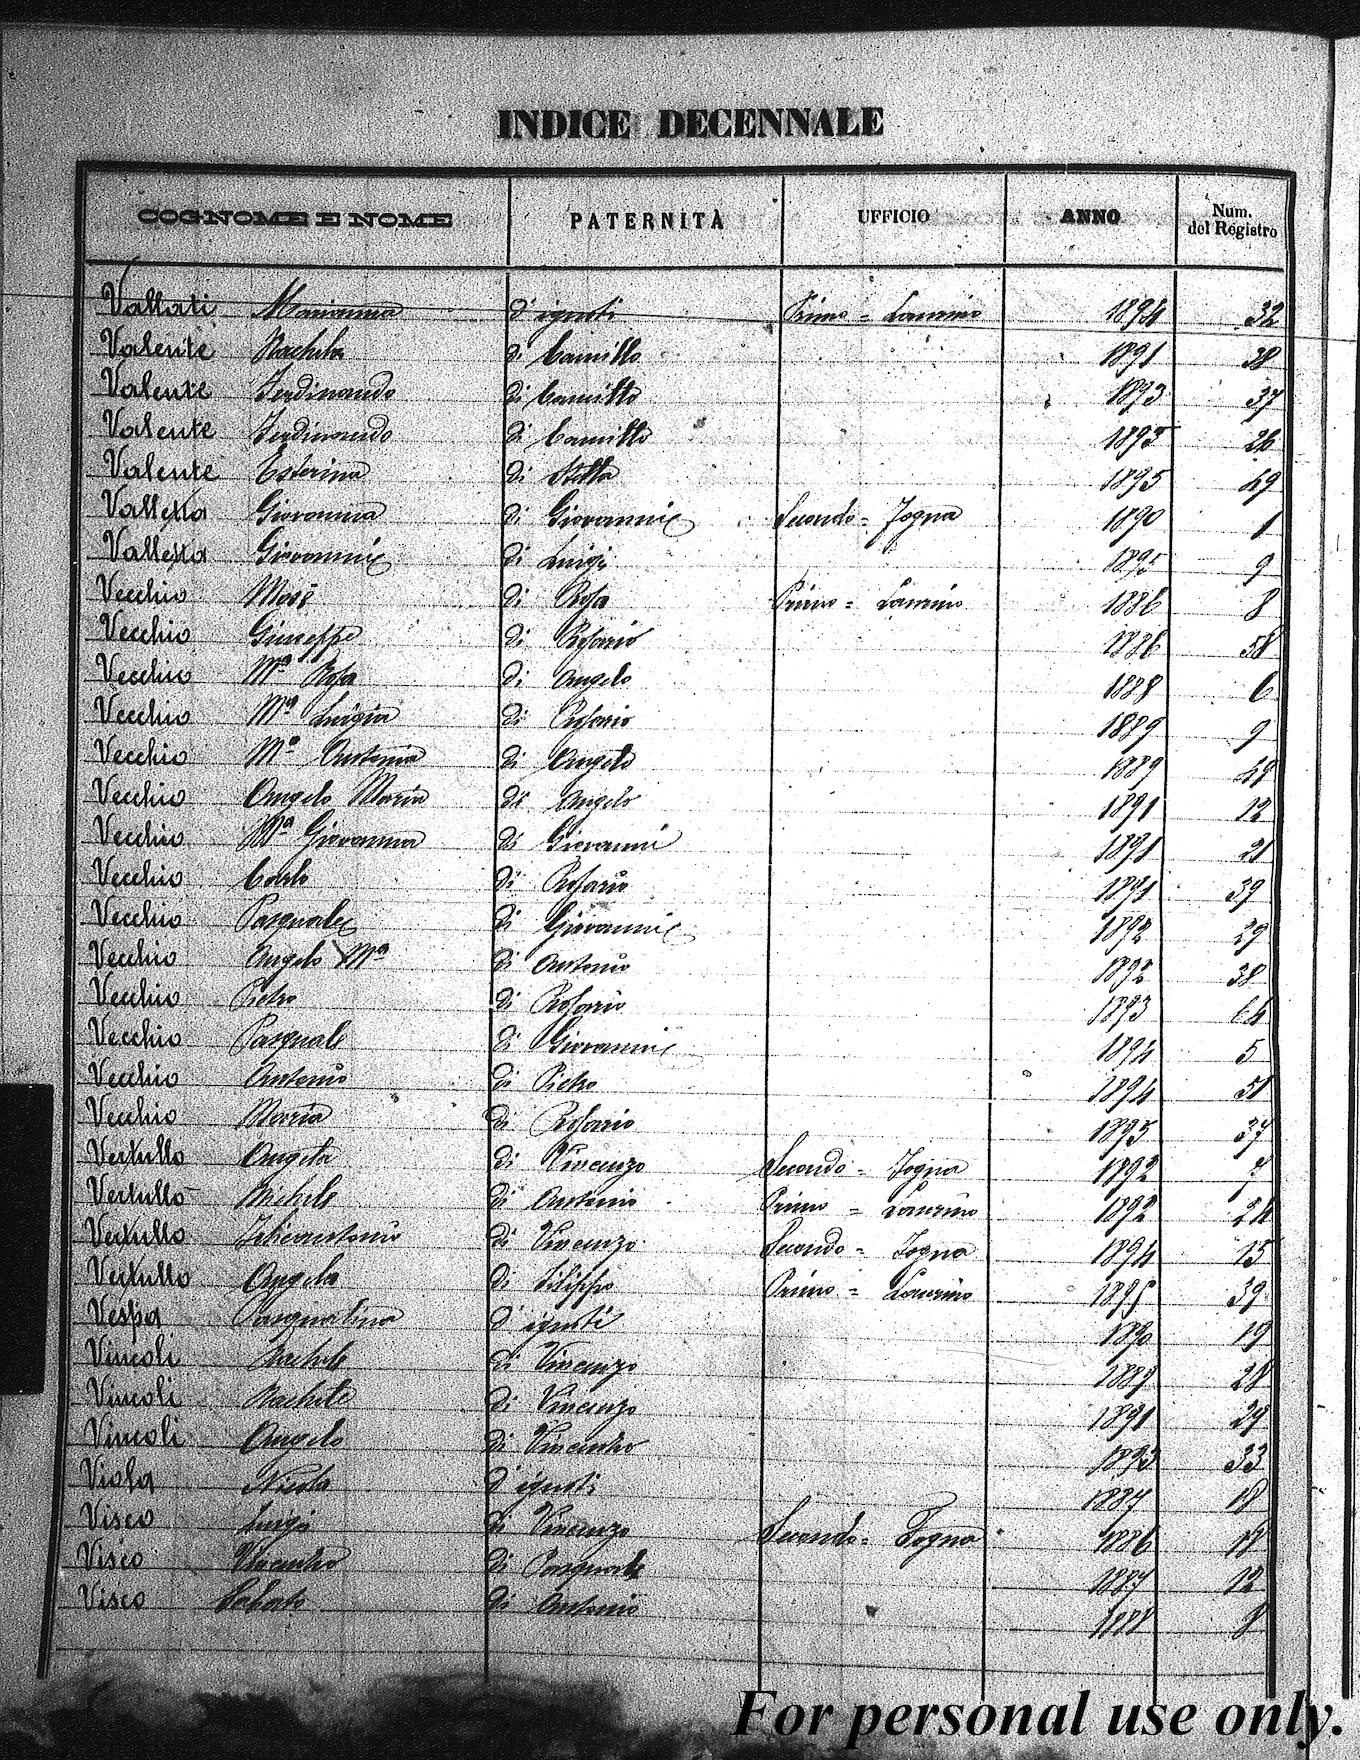 INDICE DECENNALE
COGNOME E NOME PATERNITÀ UFFICIO ANNO Num. del Registro
Vallati Marianna d'ignoti Primo = Laurino 1894 32
Valente Rachela di Camillo 1891 38
Valente Ferdinando di Camillo 1893 37
Valente Ferdinando di Camillo 1895 26
Valente Esterina di Stella 1895 49
Valletta Giovanna di Giovanni Secondo = Fogna 1890 1
Valletta Giovanni di Luigi 1895 9
Vecchio Mosè di Rosa Primo = Laurino 1886 8
Vecchio Giuseppe di Rosario 1886 58
Vecchio Mª Rosa di Angelo 1888 6
Vecchio Mª Luigia di Rosario 1889 9
Vecchio Mª Antonia di Angelo 1889 48
Vecchio Angelo Maria di Angelo 1891 12
Vecchio Mª Giovanna di Giovanni 1891 21
Vecchio Carlo di Rosario 1891 39
Vecchio Pasquale di Giovanni 1892 29
Vecchio Angelo Mª di Antonio 1892 38
Vecchio Pietro di Rosario 1893 64
Vecchio Pasquale di Giovanni 1894 5
Vecchio Antonio di Pietro 1894 51
Vecchio Maria di Rosario 1895 37
Vertullo Angela di Vincenzo Secondo = Fogna 1892 7
Vertullo Michele di Antonio Primo = Laurino 1892 24
Vertullo Feliceantonio di Vincenzo Secondo = Fogna 1894 15
Vertullo Angela di Filippo Primo = Laurino 1895 39
Vespa Pasqualina d'ignoti 1890 19
Vincoli Rachele di Vincenzo 1889 28
Vincoli Rachele di Vincenzo 1891 29
Vincoli Angelo di Vincenzo 1893 33
Viola Nicola d'ignoti 1887 18
Visco Luigi di Vincenzo Secondo = Fogna 1886 18
Visco Vincenzo di Pasquale 1887 12
Visco Sabato di Antonio 1888 8
For personal use only.